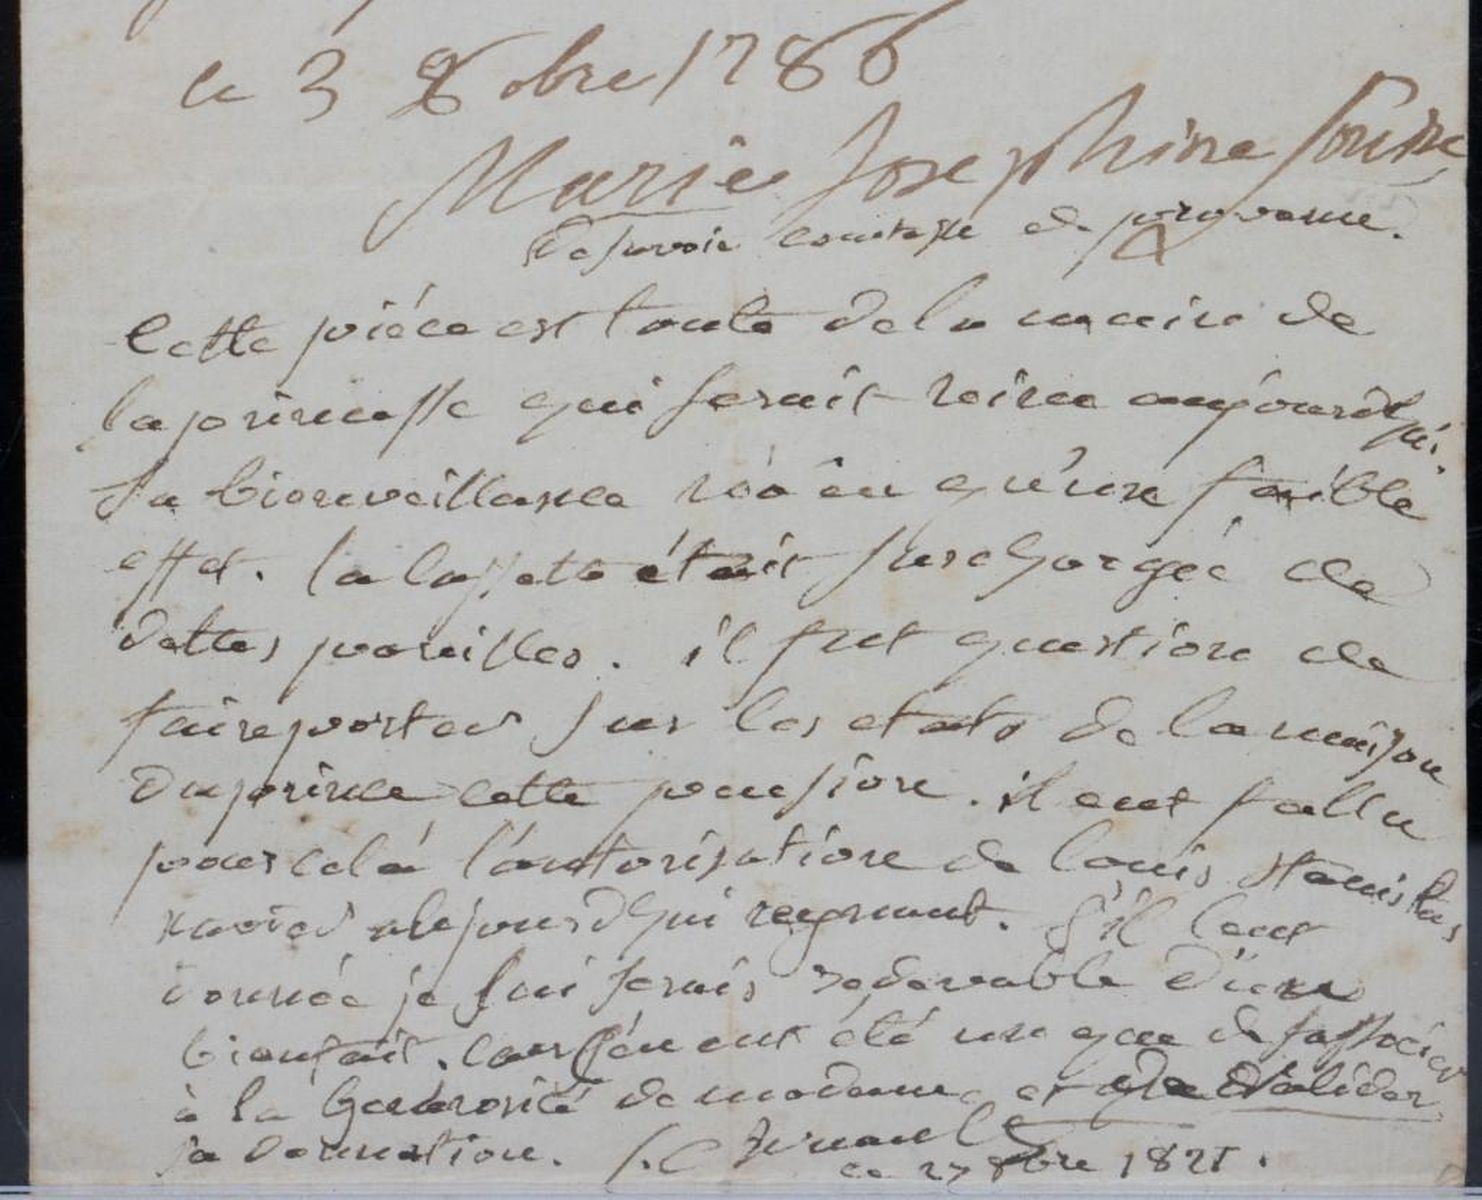 ce 3 8obre 1786
Marie Josephine Louise
de savoie comtesse de provence.
Cette piéce est toute de la main de
la princesse qui serait reine aujourdhui.
Sa bienveillance n'a eu qu'un faible
effet. la cassete était surchargée de
dettes pareilles. il fut question de
faire porter sur les etats de la maison
du prince cette pension. il eut fallu
pour cela l'autorisation de louis Stanislas
xavier aujourdhui regnant. S'il l'eut
donnée je lui serais redevable d'un
bienfait. car c'en eut été un que de s'associer
à la generosité de madame et de valider
sa donnation.
ce 27 8bre 1821.